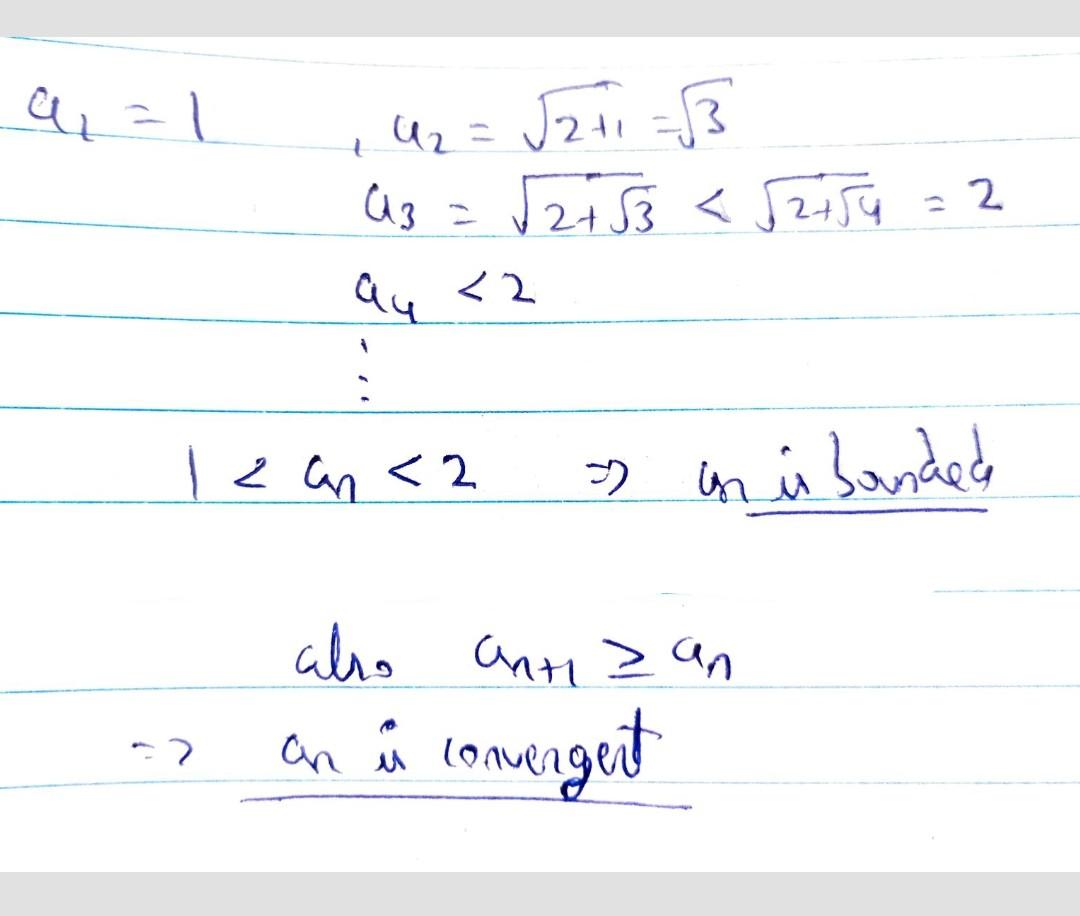 a₁ = 1 , a₂ = √(2+1) = √3
a₃ = √(2+√3) < √(2+√4) = 2
a₄ < 2
⋮
1 < aₙ < 2 ⇒ aₙ is bounded
also aₙ₊₁ ≥ aₙ
⇒ aₙ is convergent